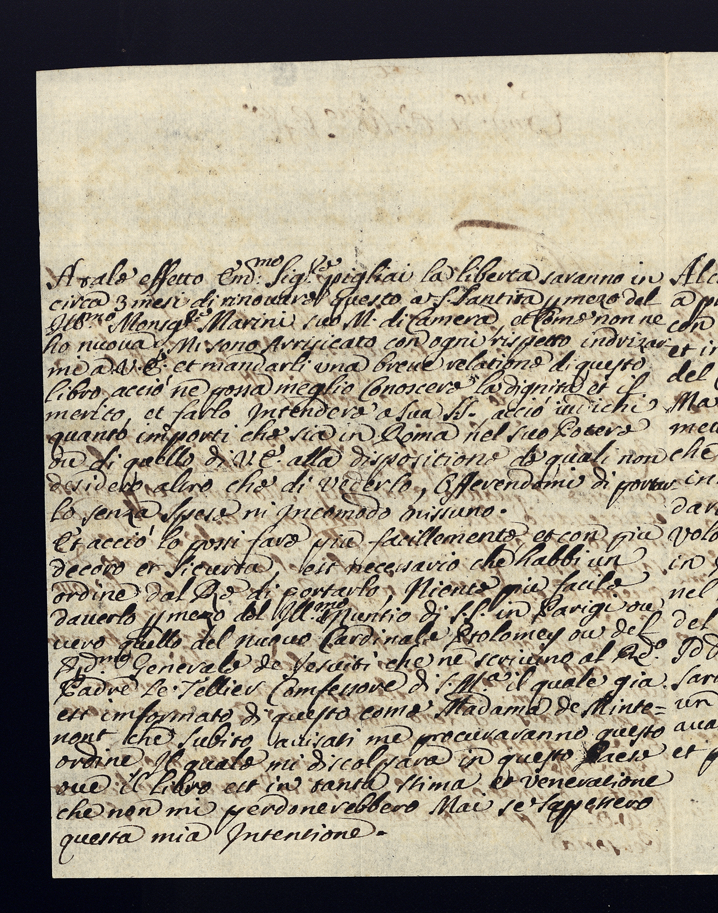 A tale effetto Em:mo Sig:re pigliai la libertà saranno in
circa 3 mesi di rinovare questo a S. Santità p mezo del
Ill:mo Monsig:re Marini suo M: di Camera, et Come non ne
ho nuova Mi sono Arrisicato con ogni rispetto indrizar-
mi a V.E: et mandarli una breve relatione di questo
libro, acciò ne possa meglio Conoscere la dignità et il
merito, et farlo Intendere a Sua SS. acciò indichi
quanto importi che sia in Roma nel suo Potere
ou di quello di V.E. alla dispositione de quali non
desidero altro che di vederlo, Offerendomi di portar
lo senza spese ni Incomodo nissuno.
Et acciò lo possi fare più facillemente et con più
decoro et sicurtà, est necessario che habbi un
ordine dal Re di portarlo, Niente più facile
d'averlo p mezo del Ill:mo Nuntio di S.S. in Parigi ou
vero quello del nuovo Cardinale Ptolomey ou del
R:mo Generale de Jesuiti che ne scrivino al R:do
Padre Le Tellier Comfessore di S.M:a il quale gia
est imformato di questo come Madama de Minte=
nont che subito avisati me procuraranno questo
ordine, Il quale mi discolpara in questo Paese
oue il libro est in tanta stima et veneratione
che non mi perdonerebbero Mai se sapessero
questa mia Intentione.
Alc
a p
con
et in
del
Ma
me
che
in
dar
volo
in
nel
del
Id
sar
un
aua
et p